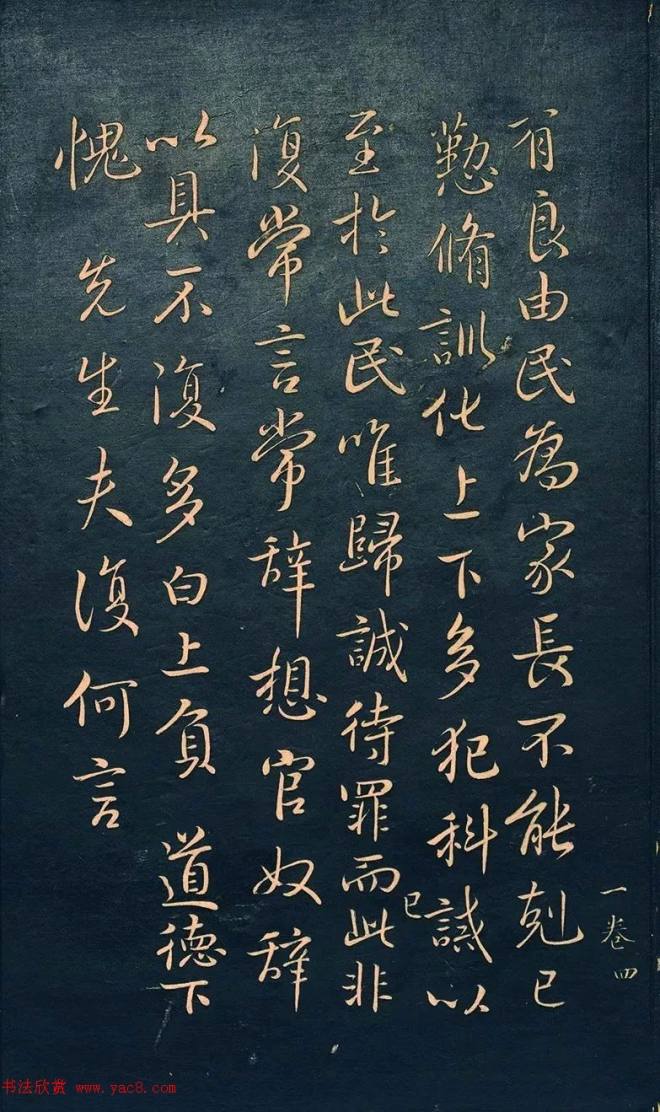 有良由民為家長不能剋己
懃脩訓化上下多犯科誡以
至於此民唯歸誠待罪而此非
復常言常辭想官奴辭
以具不復多白上負 道德下
愧 先生夫復何言
已
一卷四
书法欣赏 www.yac8.com